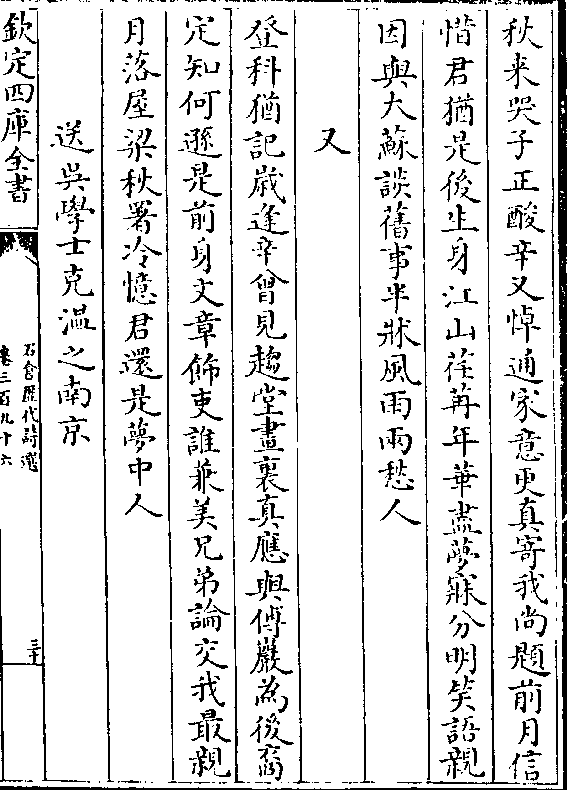 秋来哭子正酸辛又悼通家意更真寄我尚題前月信
惜君猶是後生身江山荏苒年華盡夢寐分明笑語親
因與大蘇談舊事半牀風雨兩愁人
又
登科猶記嵗逢辛曾見趨堂畫裏真應與傅巖為後裔
定知何遜是前身文章飾吏誰兼美兄弟論交我最親
月落屋梁秋署冷憶君還是夢中人
送吳學士克温之南京
欽定四庫全書
石倉歷代詩選
卷三百九十六
三十